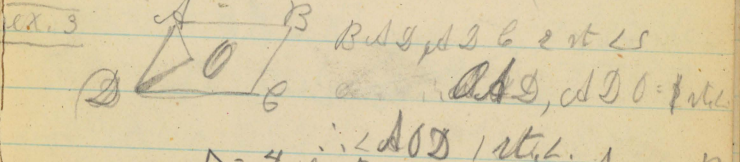 ex. 3
A B
O
D C
BAD, ADC 2 rt <s
∴ OAD, ADO = 1 rt <
∴ < AOD 1 rt. <.